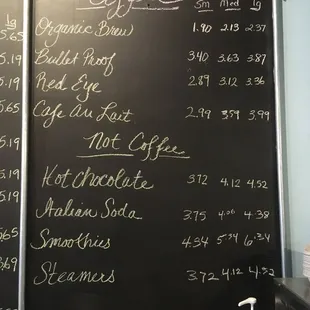 Coffee
Sm Med Lg
Organic Brew 1.90 2.13 2.37
Bullet Proof 3.40 3.63 3.87
Red Eye 2.89 3.12 3.36
Cafe Au Lait 2.99 3.59 3.99
Not Coffee
Hot Chocolate 3.72 4.12 4.52
Italian Soda 3.75 4.06 4.38
Smoothies 4.54 5.34 6.34
Steamers 3.72 4.12 4.52
lg
5.65
5.19
5.19
5.65
5.19
5.19
5.19